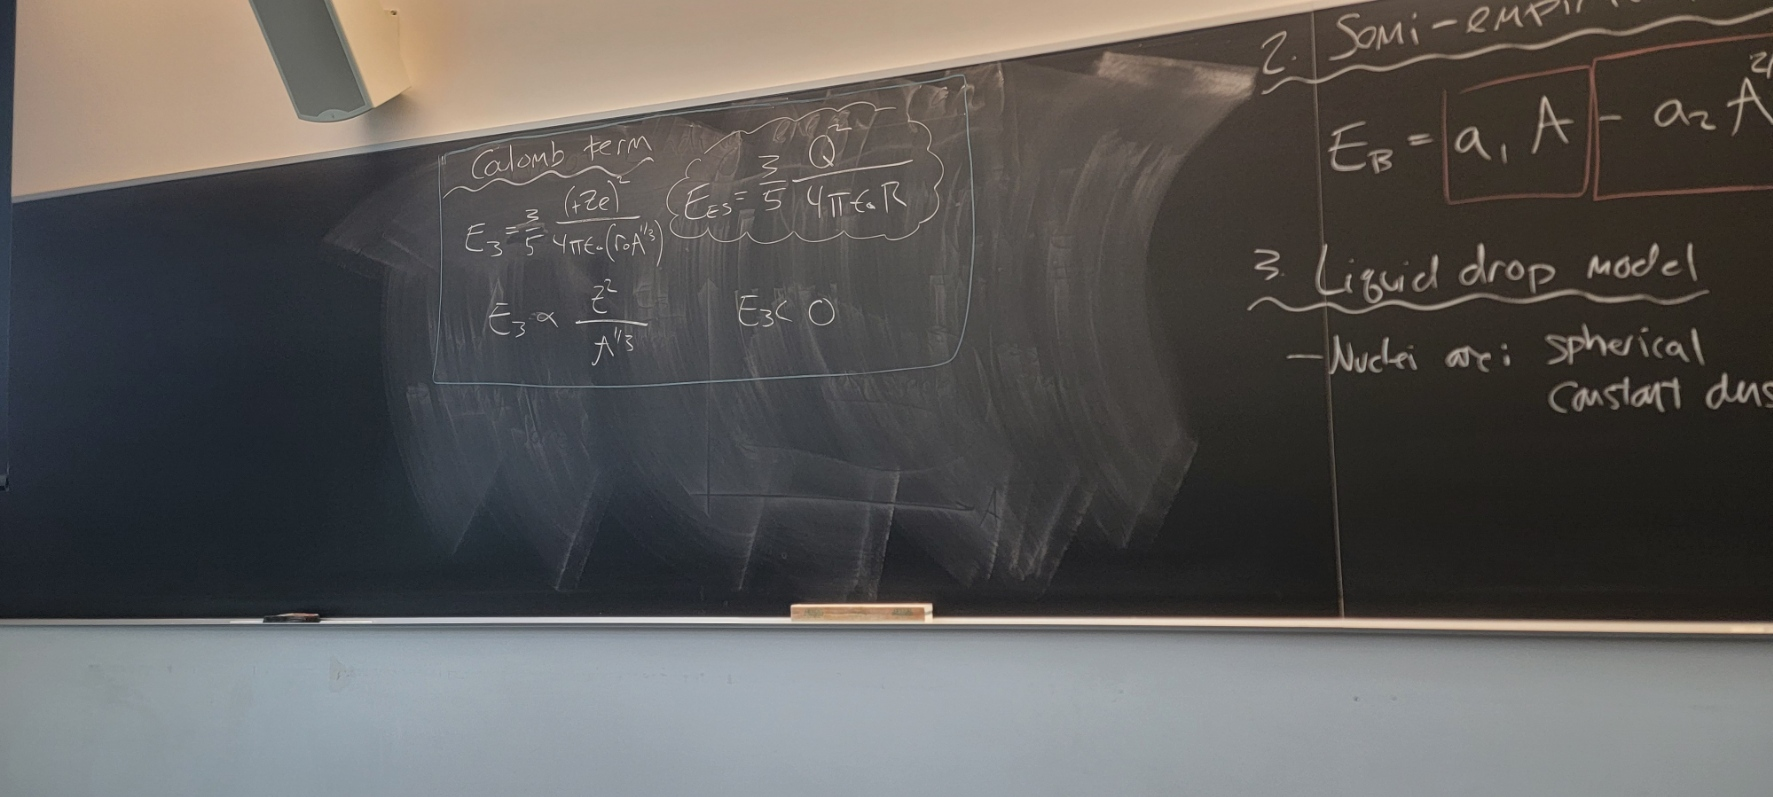 Calomb term
E₃ = 3/5 (+Ze)² / 4πε₀(r₀A^1/3)
E_ES = 3/5 Q² / 4πε₀R
E₃ ∝ Z² / A^1/3
E₃ < 0
2. Semi-empi
E_B = a₁ A - a₂ A^2/
3. Liquid drop model
- Nuclei are: spherical
constant dens